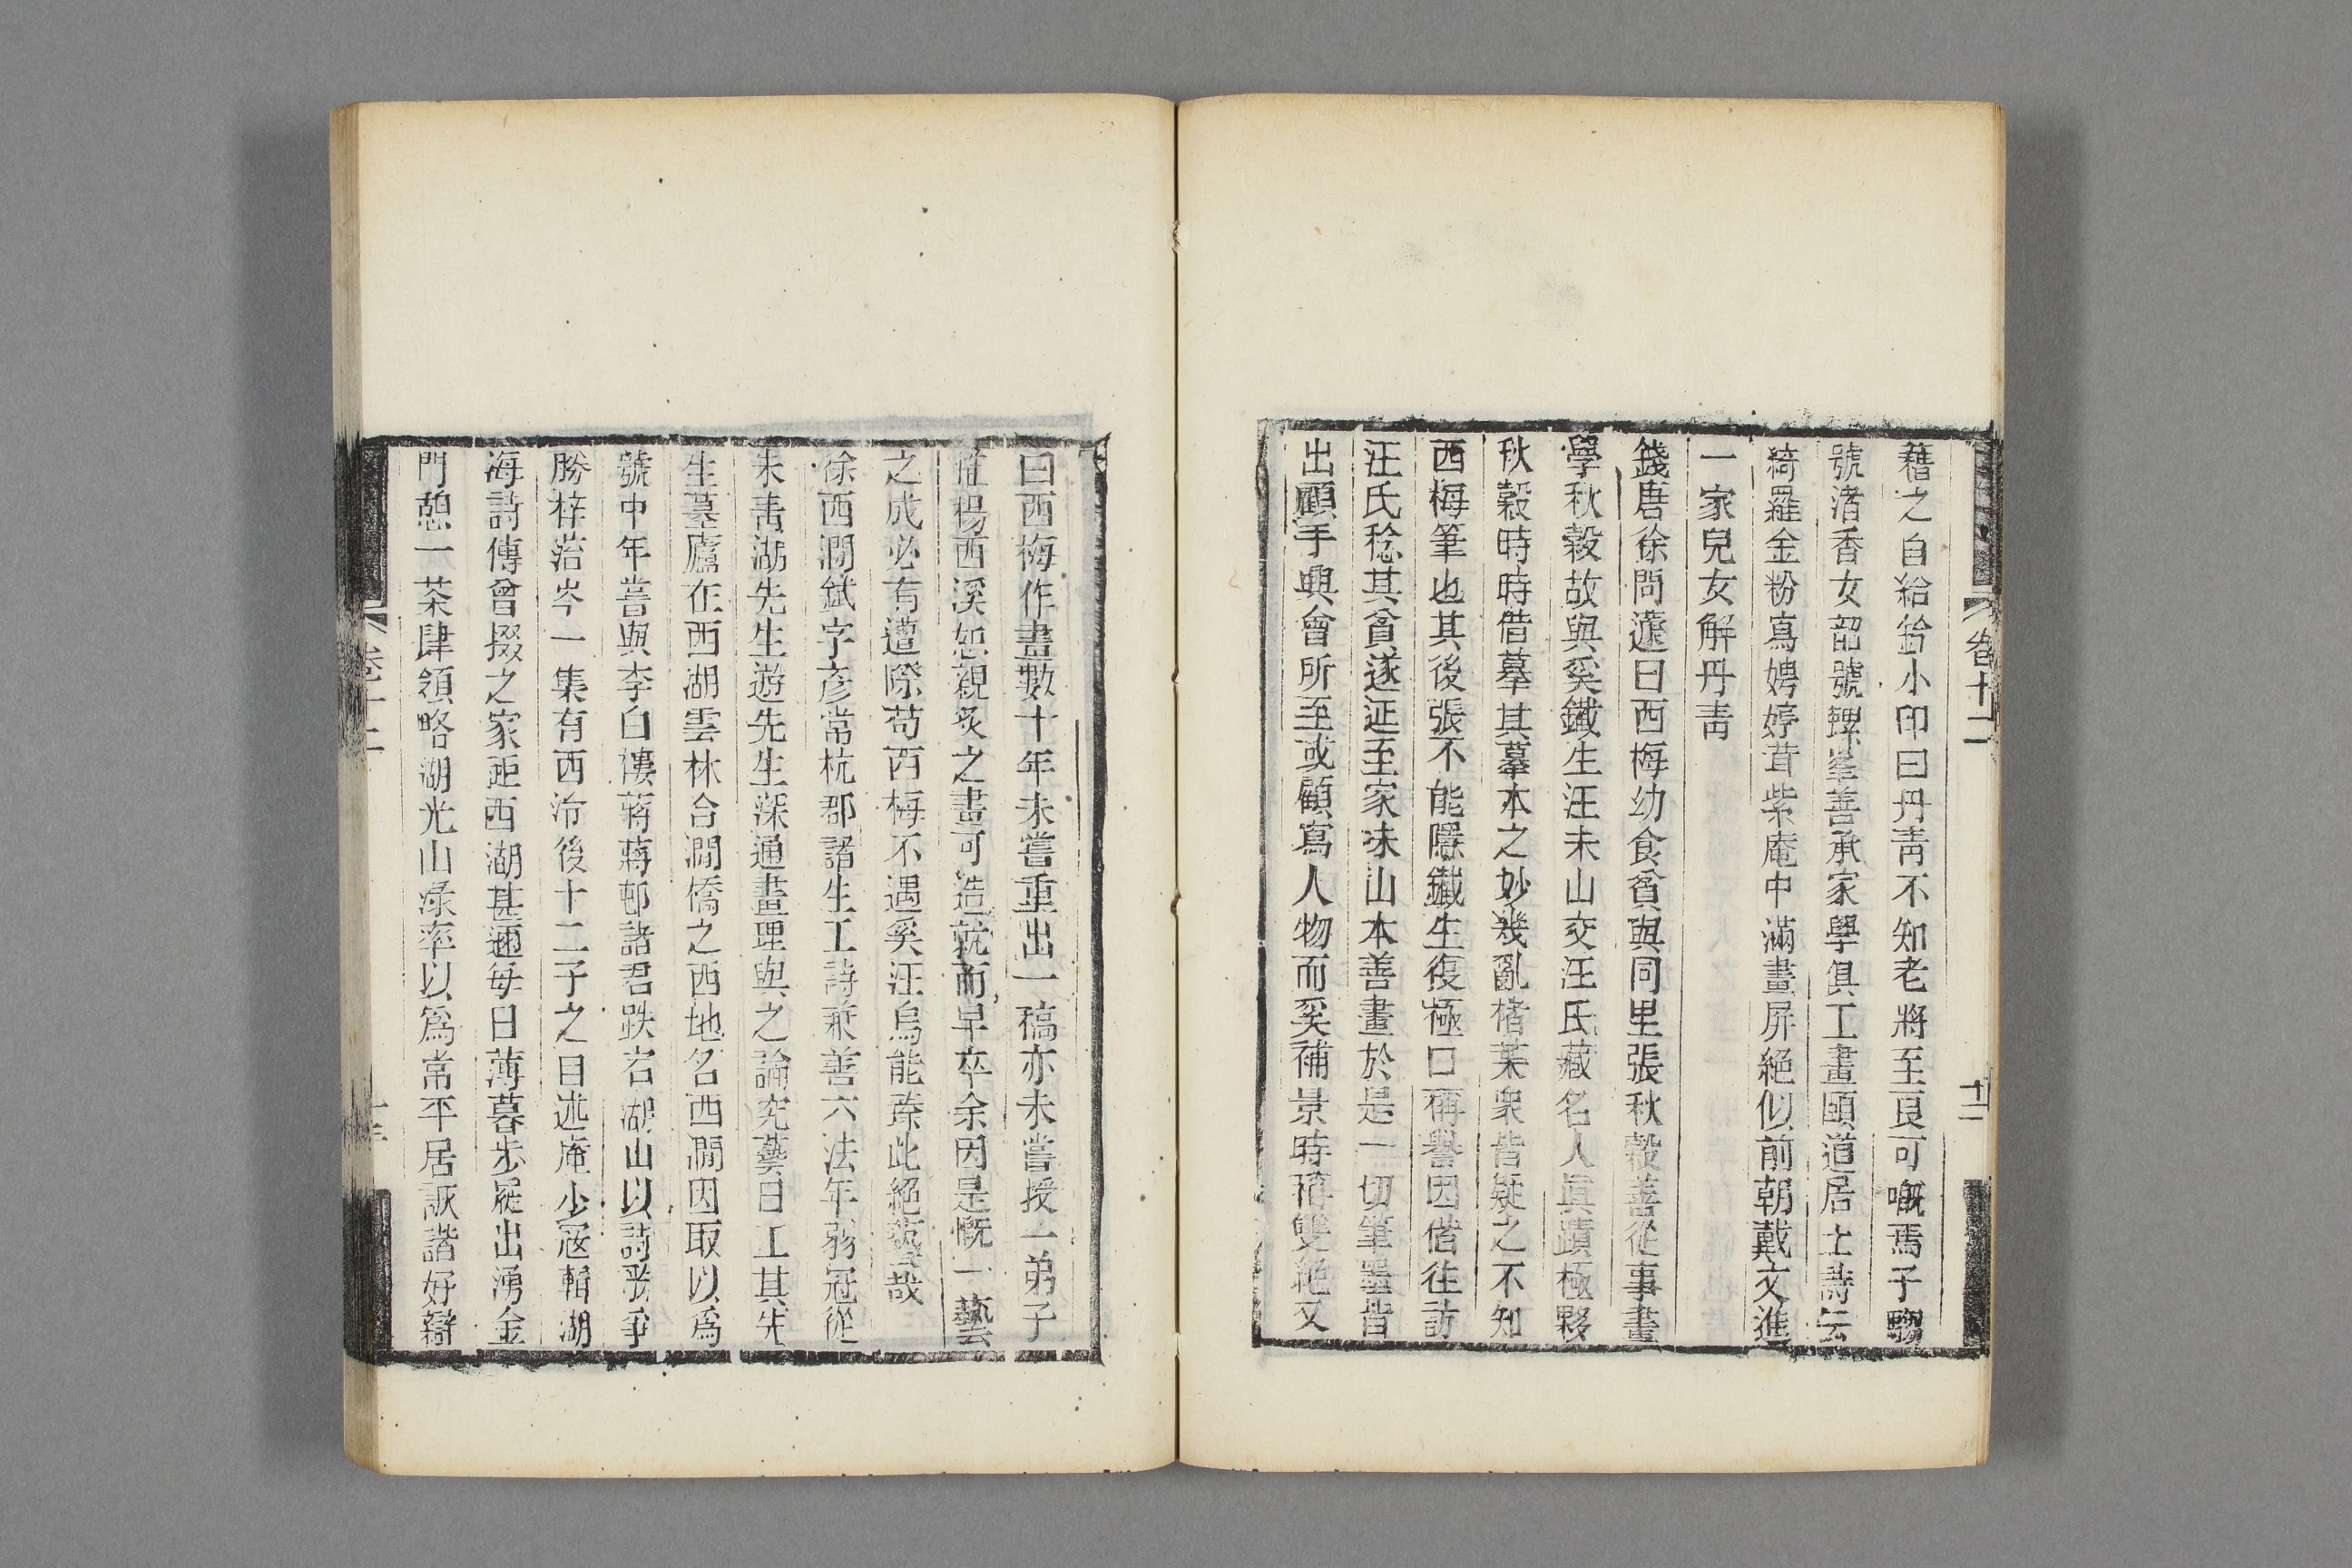 卷十二
十二
藉之自給鈐小印曰丹靑不知老將至良可嘅焉子騶
號渚香女韶號螺峯善承家學俱工畫頤道居士詩云
綺羅金粉寫娉婷昔紫庵中滿畫屏絕似前朝戴文進
一家兒女解丹靑
錢唐徐問蘧曰西梅幼食貧與同里張秋穀善從事畫
學秋穀故與奚鐵生汪未山交汪氏藏名人眞蹟極夥
秋穀時時借摹其摹本之妙幾亂楮葉衆皆疑之不知
西梅筆也其後張不能隱鐵生復極口稱譽因偕往訪
汪氏稔其貧遂延至家未山本善畫於是一切筆墨皆
出顧手興會所至或顧寫人物而奚補景時稱雙絕又
曰西梅作畫數十年未嘗重出一稿亦未嘗授一弟子
惟楊西溪恕親炙之畫可造就而早卒余因是慨一藝
之成必有遭際苟西梅不遇奚汪烏能臻此絕藝哉
徐西澗鉽字彥常杭郡諸生工詩兼善六法年弱冠從
朱靑湖先生遊先生深通畫理與之論究藝日工其先
生墓廬在西湖雲林合澗橋之西地名西澗因取以爲
號中年嘗與李白樓蔣蔣邨諸君跌宕湖山以詩戲爭
勝梓菭岑一集有西泠後十二子之目述庵少寇輯湖
海詩傳曾掇之家距西湖甚邇每日薄暮步屧出湧金
門憩一茶肆領略湖光山淥率以爲常平居詼諧好辯
卷十二